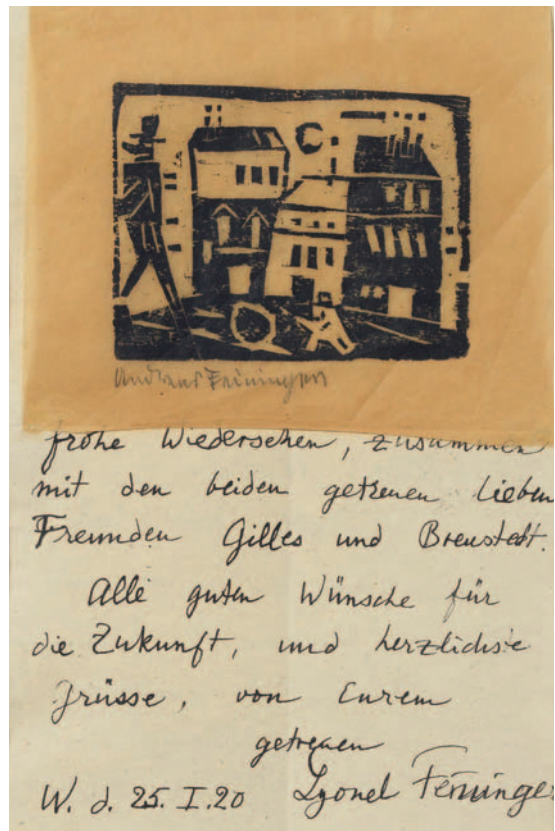 Andreas Feininger
frohe Wiedersehen, zusammen
mit den beiden getreuen lieben
Freunden Gilles und Breustedt.
Alle guten Wünsche für
die Zukunft, und herzlichste
Grüsse, von Eurem
getreuen
W. d. 25. I. 20 Lyonel Feininger